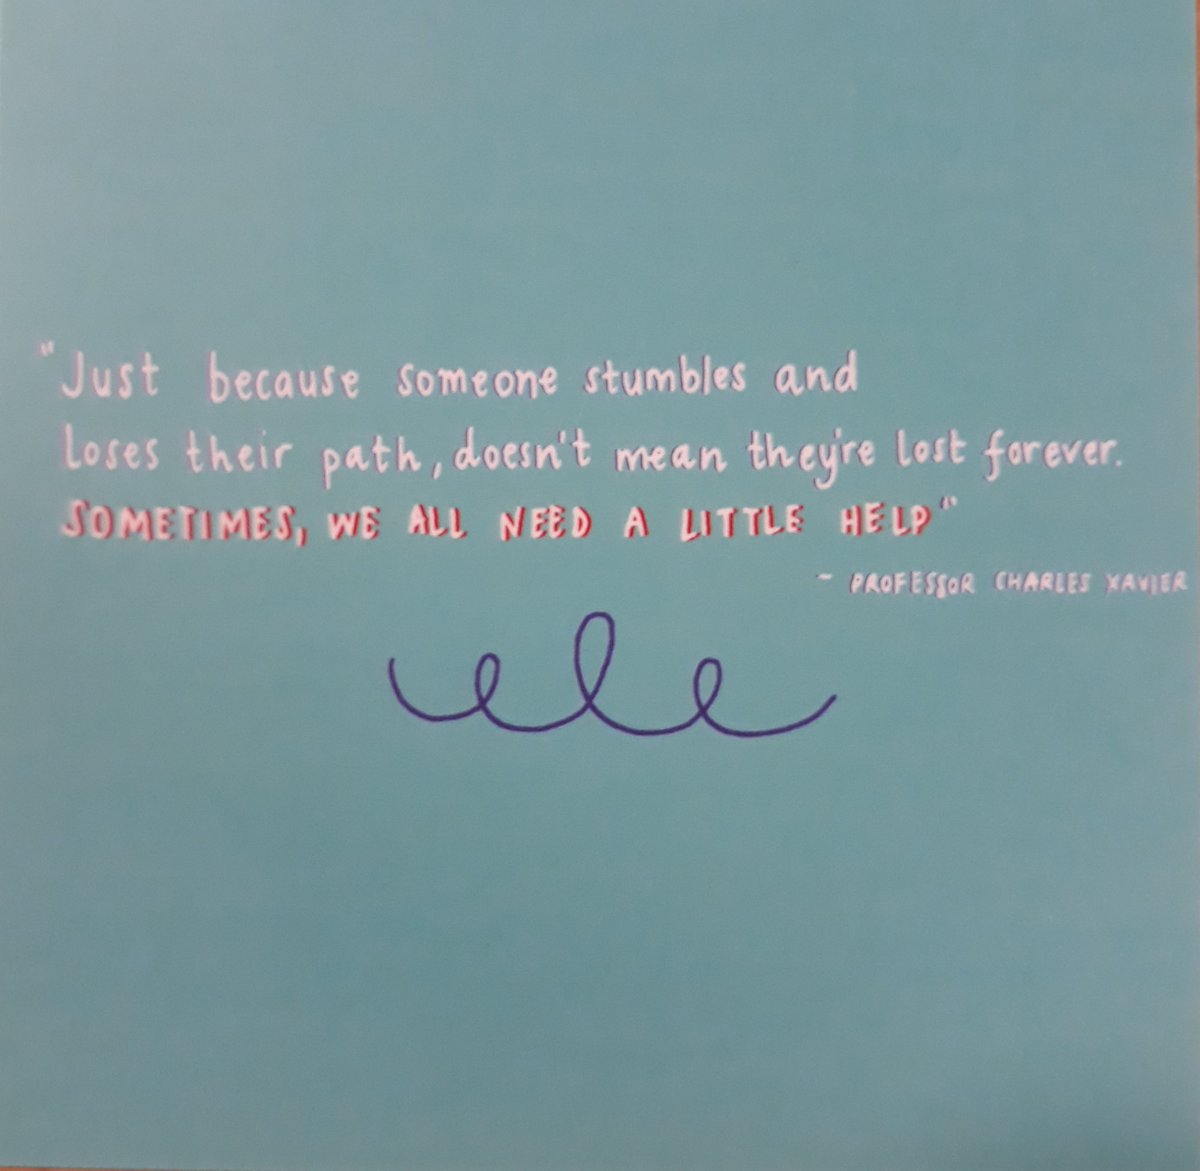 "Just because someone stumbles and
loses their path, doesn't mean they're lost forever.
SOMETIMES, WE ALL NEED A LITTLE HELP"
- PROFESSOR CHARLES XAVIER